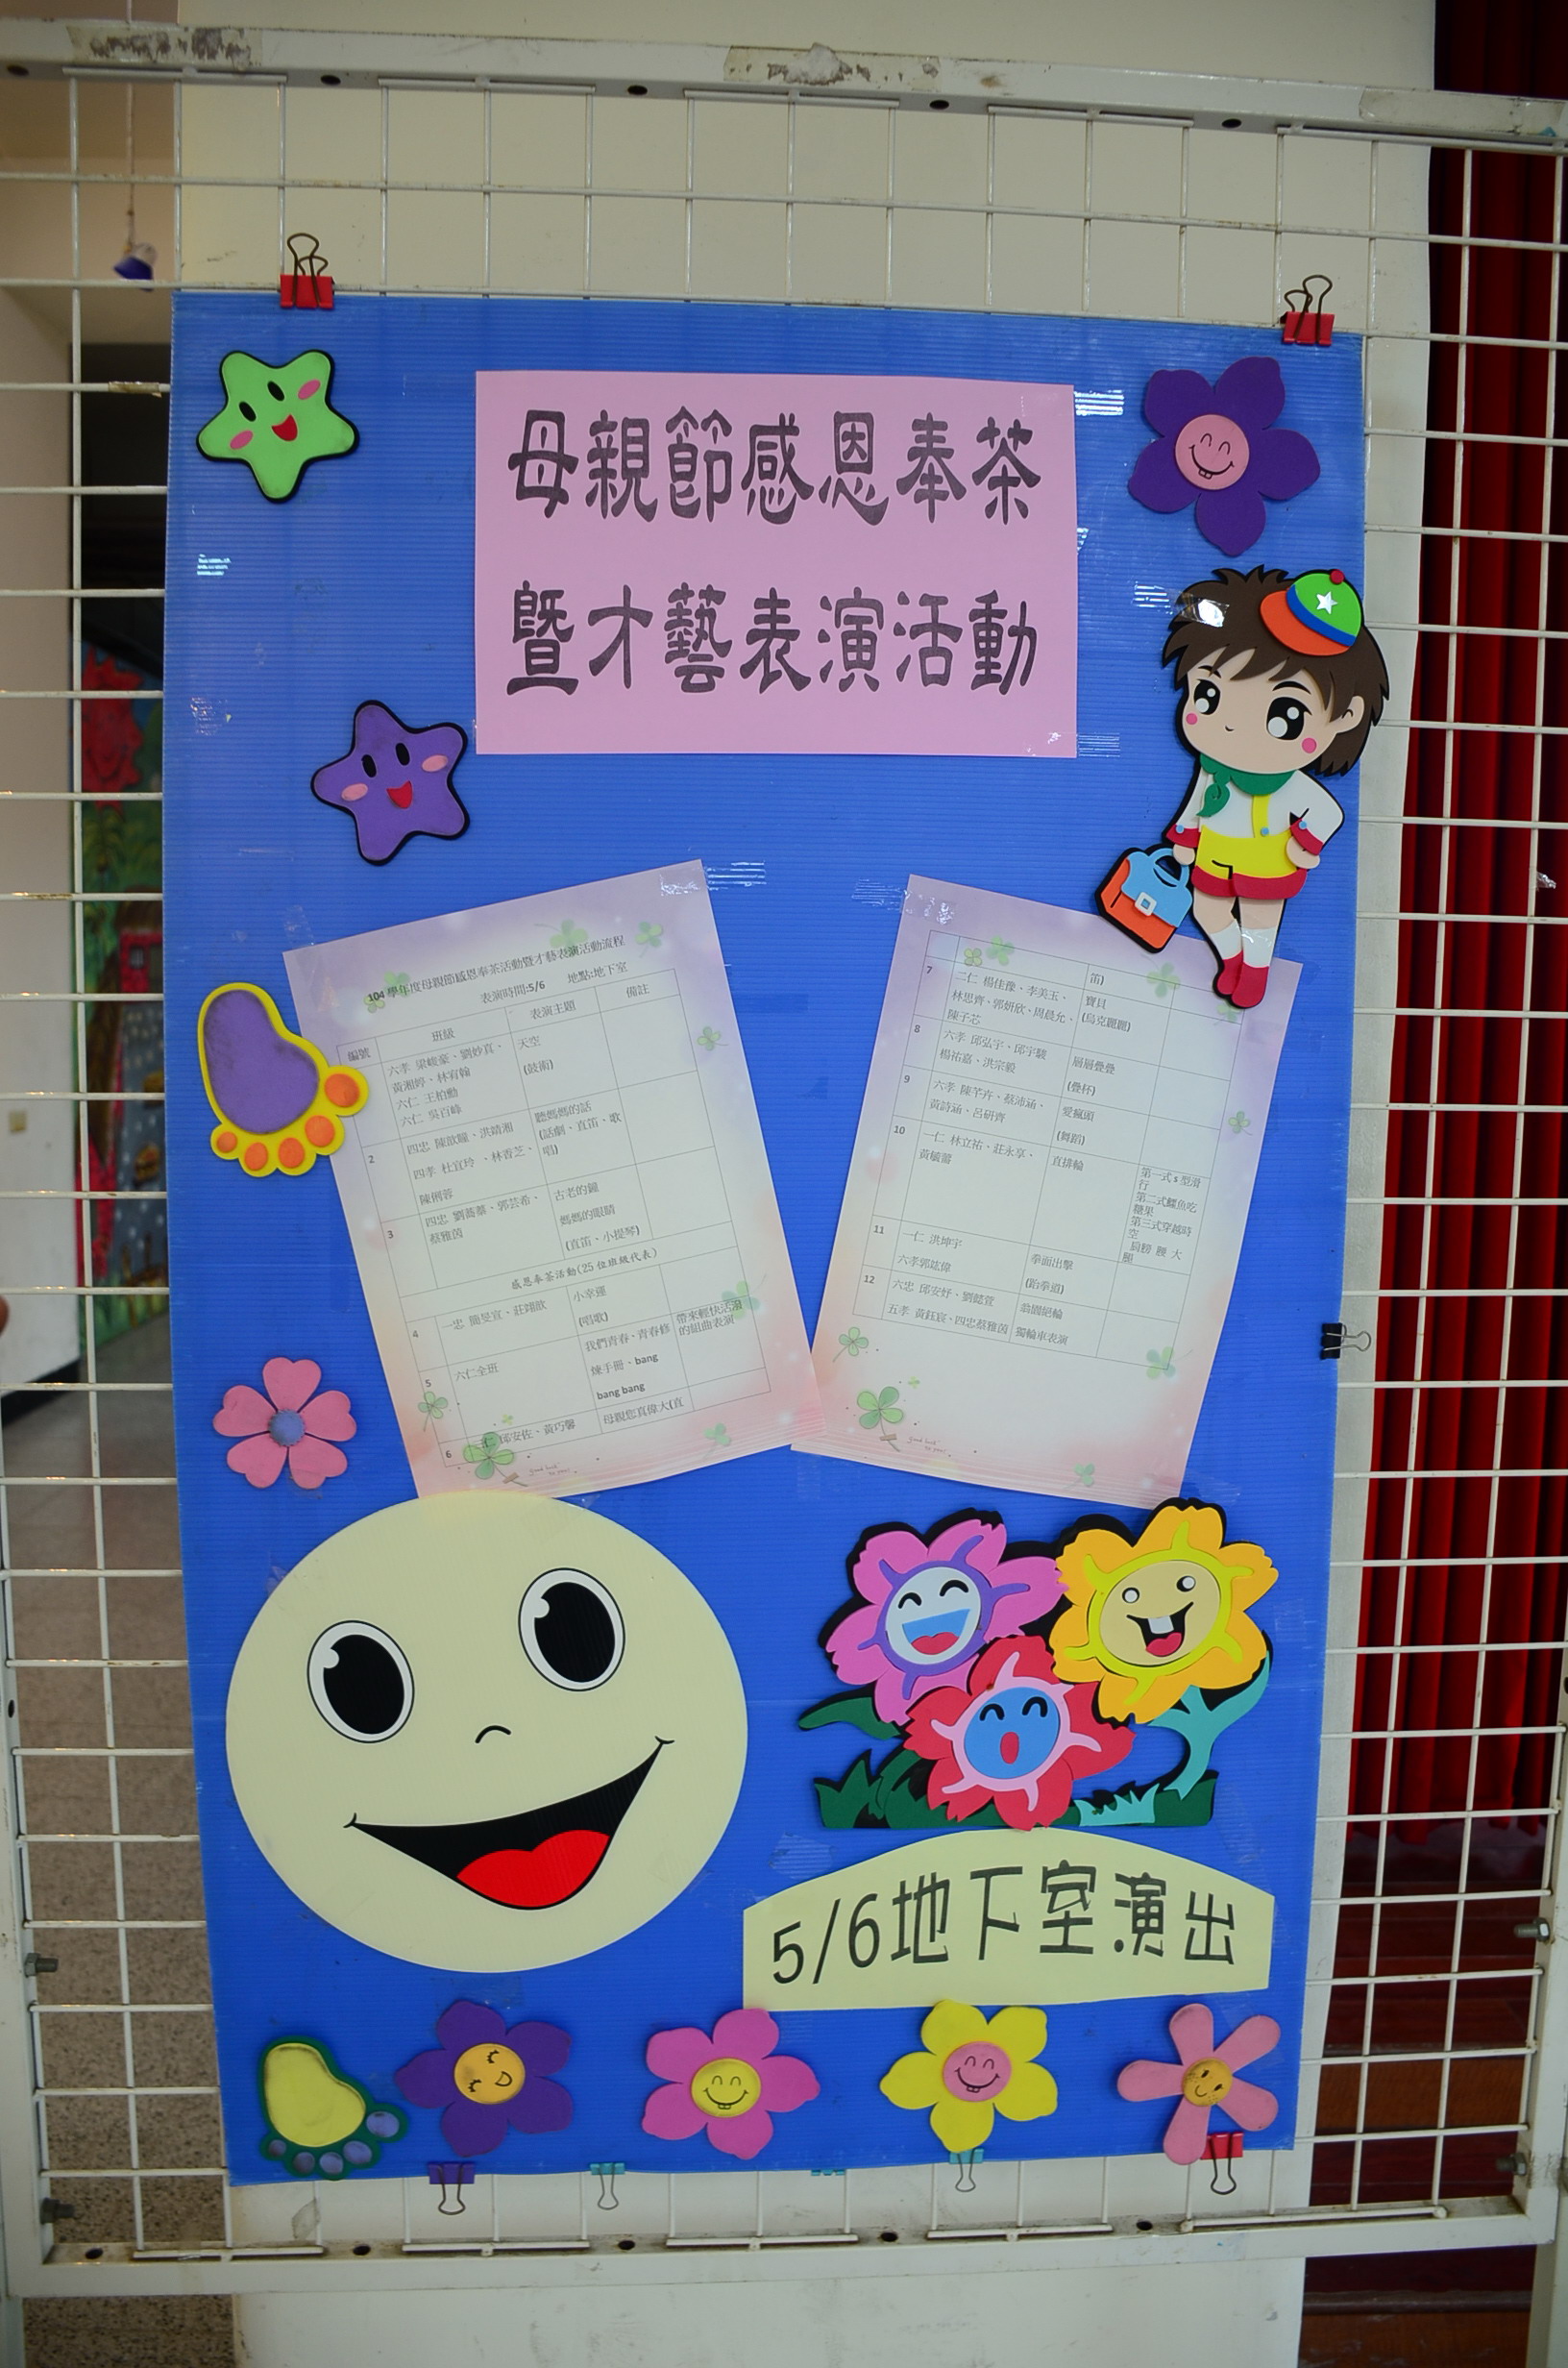 母親節感恩奉茶
暨才藝表演活動
104 學年度母親節感恩奉茶活動暨才藝表演活動流程
表演時間:5/6 地點:地下室
編號 班級 表演主題 備註
六孝 梁峻豪、劉妙真、 天空
黃湘婷、林宥翰 (鼓術)
六仁 王柏勳
六仁 吳百峰
2 四忠 陳歆瞳、洪靖湘 聽媽媽的話
四孝 杜宜玲、林香芝、 (話劇、直笛、歌
陳俐蓉 唱)
3 四忠 劉蕎蓁、郭芸希、 古老的鐘
蔡雅茵 媽媽的眼睛
(直笛、小提琴)
感恩奉茶活動(25 位班級代表)
4 一忠 簡旻宣、莊翊歆 小幸運
(唱歌)
5 六仁全班 我們青春、青春修 帶來輕快活潑
煉手冊、bang 的組曲表演
bang bang
6 二仁 邱安佐、黃巧馨 母親您真偉大(直
笛)
7 二仁 楊佳豫、李美玉、 寶貝
林思齊、郭妍欣、周晨允、 (烏克麗麗)
陳子芯
8 六孝 邱弘宇、邱宇駿 層層疊疊
楊祐嘉、洪宗毅 (疊杯)
9 六孝 陳芊卉、蔡沛涵、 愛瘋頭
黃詩涵、呂研齊 (舞蹈)
10 一仁 林立祐、莊永享、 直排輪 第一式 s 型滑
黃毓蕾 行
第二式鱷魚吃
糖果
第三式穿越時
空
肩膀 腰 大
腿
11 一仁 洪坤宇 拳面出擊
六孝郭竑偉 (跆拳道)
12 六忠 邱安妤、劉懿萱 翁園絕輪
五孝 黃鈺宸、四忠蔡雅茵 獨輪車表演
Good luck
to you!
Good luck
to you!
5/6地下室演出